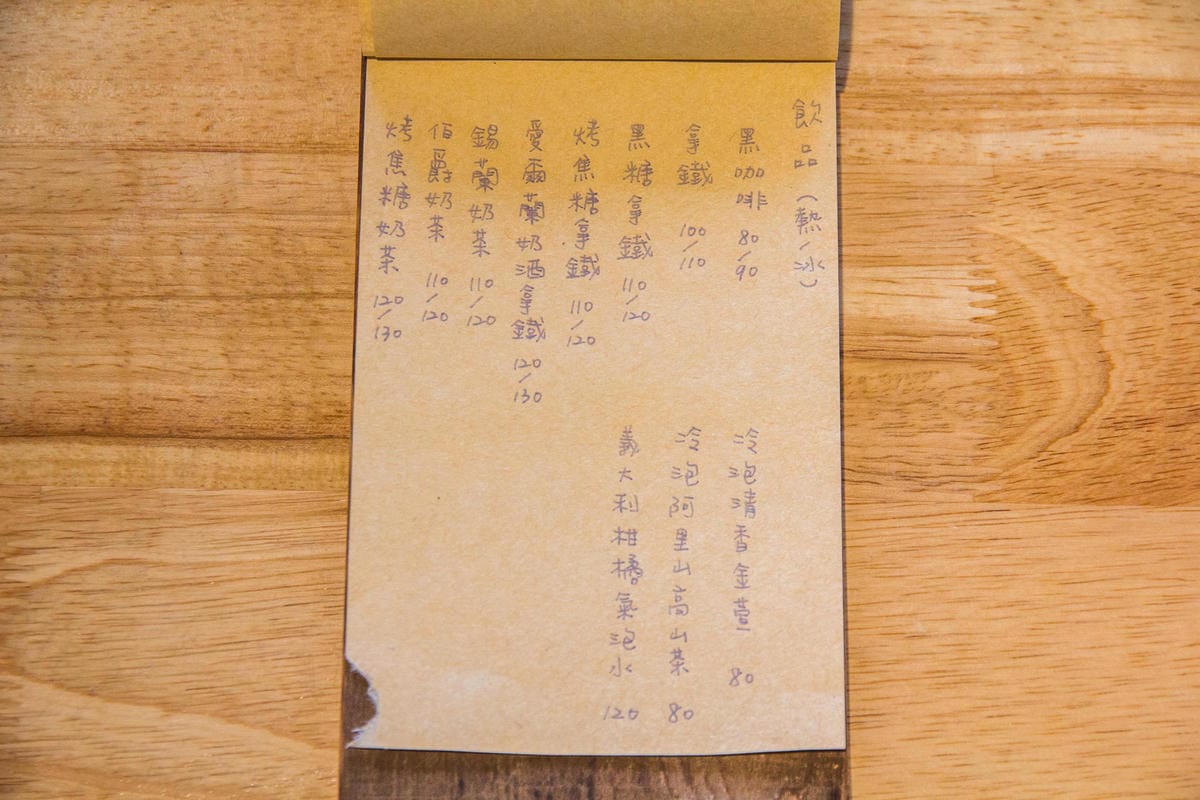 飲品(熱/冰)
黑咖啡 80/90
拿鐵 100/110
黑糖拿鐵 110/120
烤焦糖拿鐵 110/120
愛爾蘭奶酒拿鐵 120/130
錫蘭奶茶 110/120
伯爵奶茶 110/120
烤焦糖奶茶 120/130
冷泡清香金萱 80
冷泡阿里山高山茶 80
義大利柑橘氣泡水 120